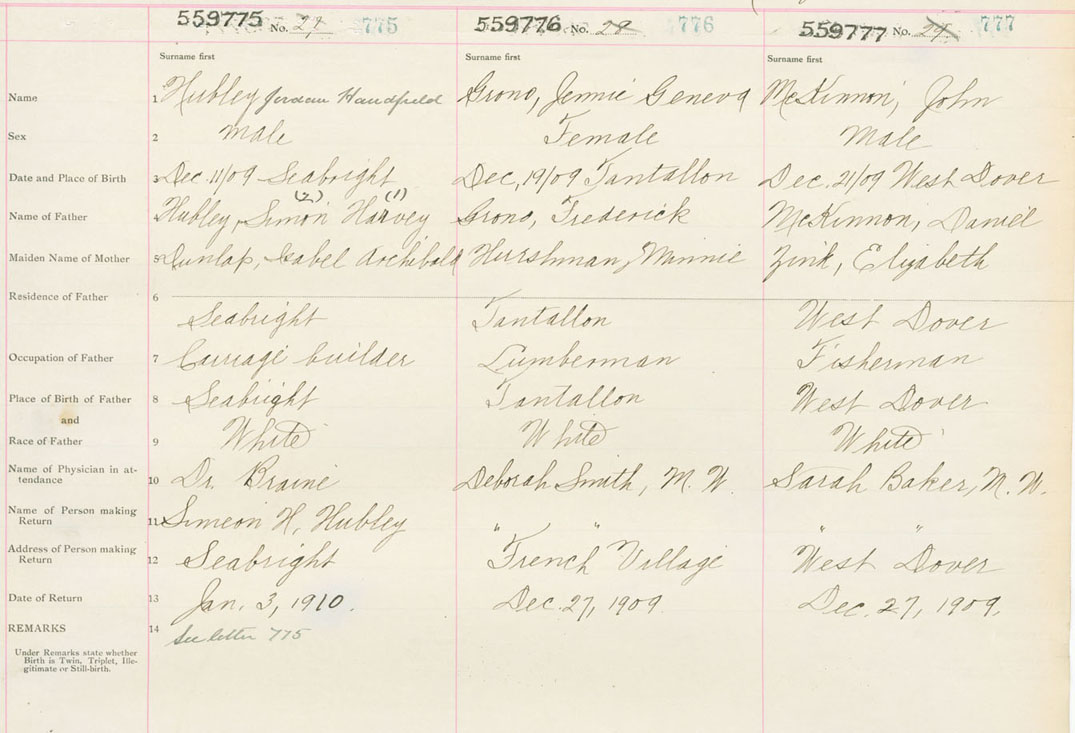 559775 No. 27 775 559776 No. 28 776 559777 No. 29 777
Surname first Surname first Surname first
Name 1 Hubley Jordan Handfield Grono, Jennie Geneva McKinnon, John
Sex 2 Male Female Male
Date and Place of Birth 3 Dec. 11/09 Seabright Dec. 19/09 Tantallon Dec. 21/09 West Dover
(2) (1)
Name of Father 4 Hubley, Simon Harvey Grono, Frederick McKinnon, Daniel
Maiden Name of Mother 5 Dunlap, Isabel Archibald Hurshman, Minnie Zink, Elizabeth
Residence of Father 6
Seabright Tantallon West Dover
Occupation of Father 7 Carriage builder Lumberman Fisherman
Place of Birth of Father 8 Seabright Tantallon West Dover
and
Race of Father 9 White White White
Name of Physician in at-
tendance 10 Dr. Braine Deborah Smith, M. W. Sarah Baker, M. W.
Name of Person making
Return 11 Simeon H. Hubley " " " "
Address of Person making
Return 12 Seabright French Village West Dover
Date of Return 13 Jan. 3, 1910. Dec. 27, 1909 Dec. 27, 1909.
REMARKS 14 See letter 775
Under Remarks state whether
Birth is Twin, Triplet, Ille-
gitimate or Still-birth.